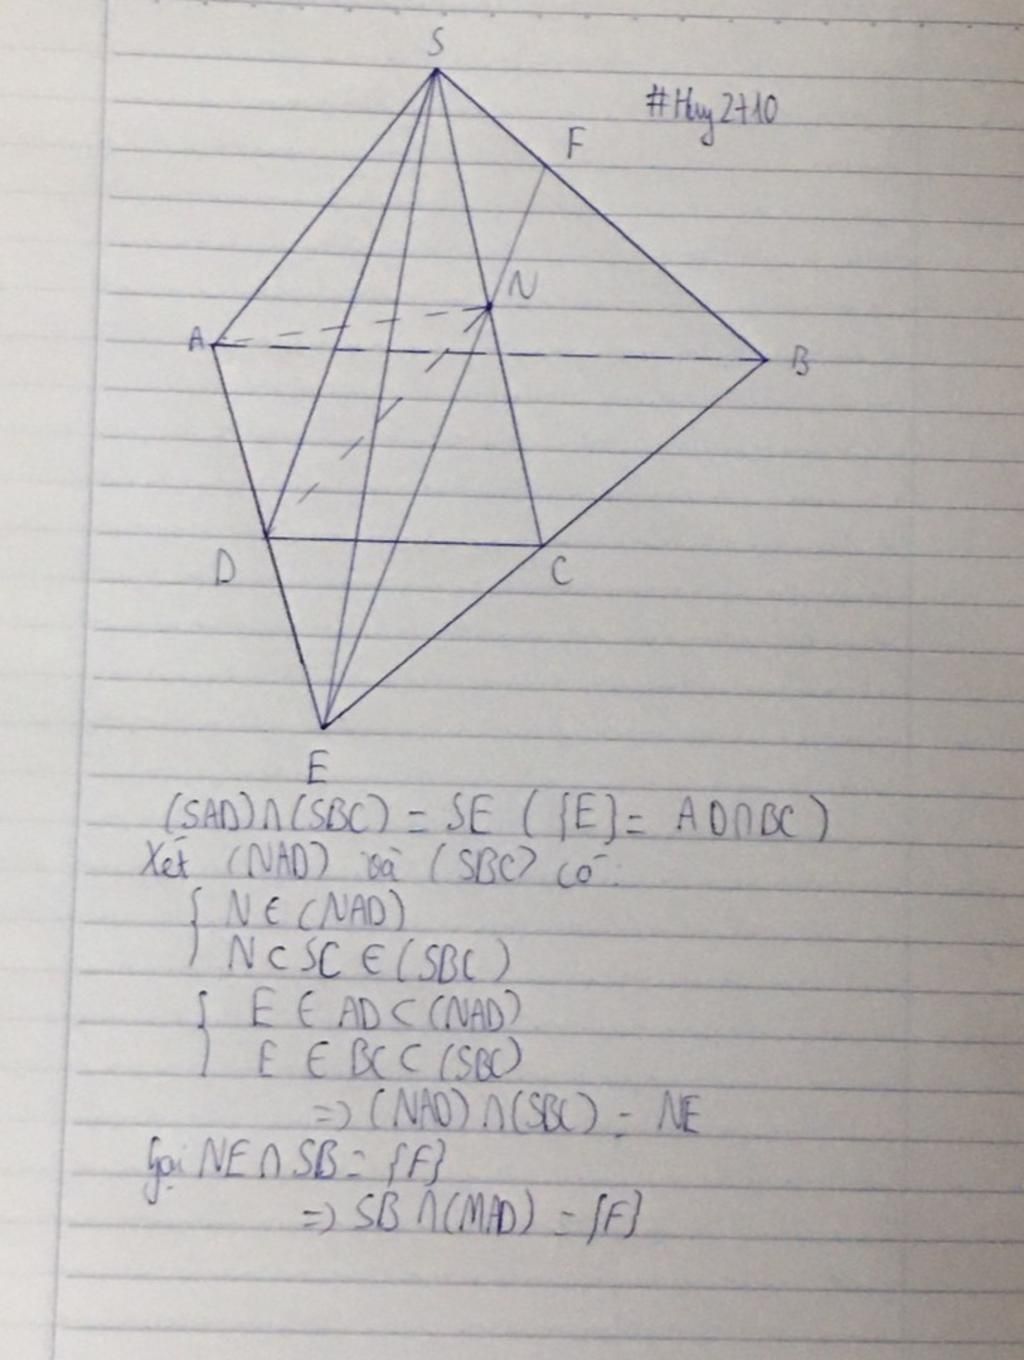 S
#Huy2710
F
N
A
B
D
C
E
(SAD)∩(SBC) = SE ( {E} = AD∩BC )
Xét (NAD) và (SBC) có:
{ N ∈ (NAD)
N ⊂ SC ∈ (SBC)
{ E ∈ AD ⊂ (NAD)
E ∈ BC ⊂ (SBC)
=> (NAD) ∩ (SBC) = NE
Gọi NE ∩ SB = {F}
=> SB ∩ (MAD) = {F}